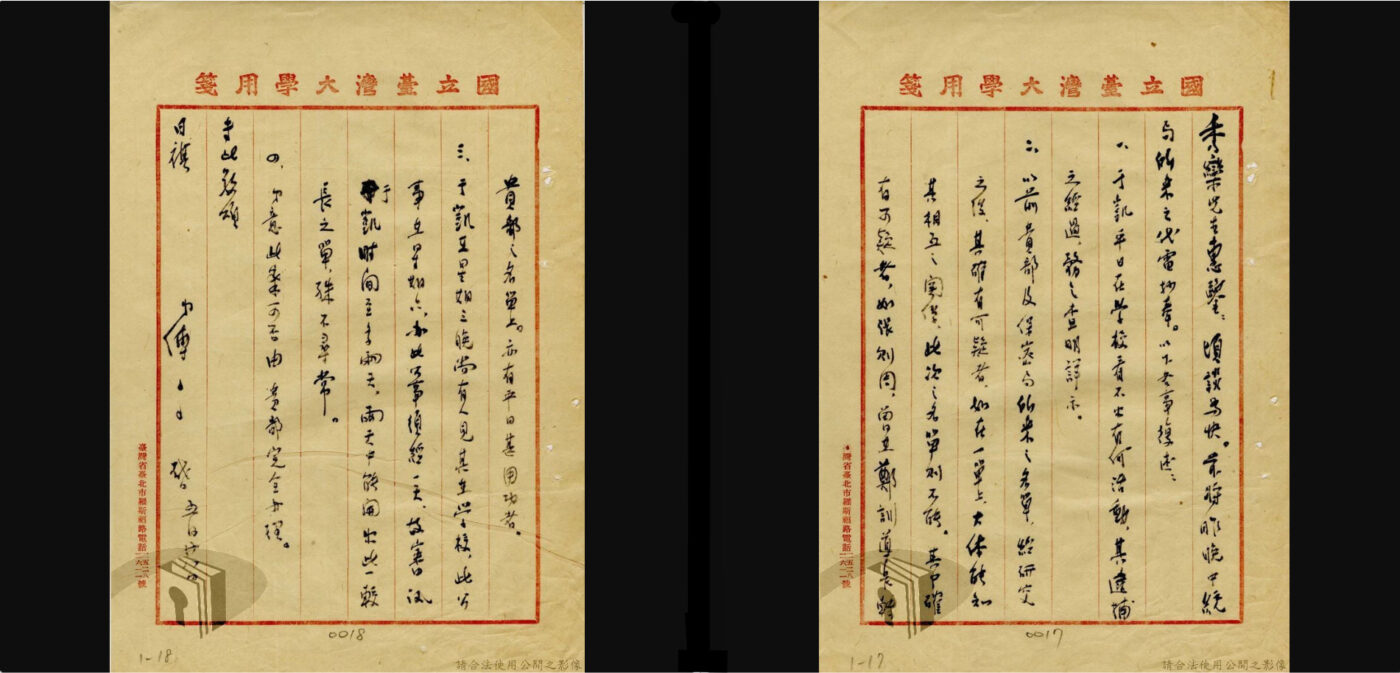 國立臺灣大學用箋
秀巒先生惠鑒：頃談為快。茲將昨晚中統
局所来之代電抄奉。以下各事複述：
一、于凱平日在學校看不出有何活動，其逮捕
之經過，務乞查明詳示。
二、以前貴部及保密局所来之名單，經研究
之後，其確有可疑者，如在一單上，大体能知
其相互之關係，此次之名單則不能。其中確
有可疑者，如張則周，尚是鄭訓導長
臺灣省臺北市羅斯福路電話
0017
1-17
請合法使用公開之影像
國立臺灣大學用箋
貴部之名單上。亦有平日甚用功者。
三、于凱在星期三晚尚有人見其在學校，此公
事在星期六，如此公事須經一天，故審問
于凱時間至多兩天，兩天中能開出此一較
長之單，殊不尋常。
四、弟意此案可否由貴部完全辦理。
專此敬頌
日祺
弟傅 啓 五月
臺灣省臺北市羅斯福路電話
0018
1-18
請合法使用公開之影像